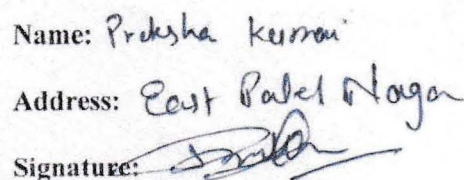 Name: Preksha Kumari
Address: East Patel Nagar
Signature: